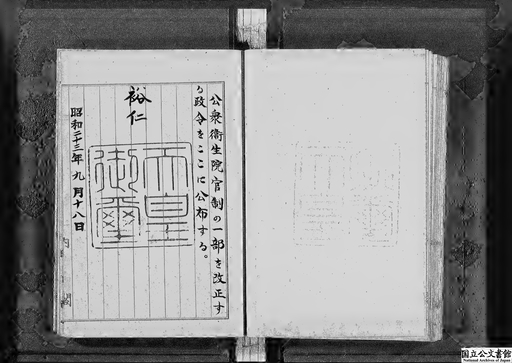 公衆衛生院官制の一部を改正す
る政令をここに公布する。
裕仁
天皇
御璽
昭和二十三年九月十八日
内閣
国立公文書館
National Archives of Japan